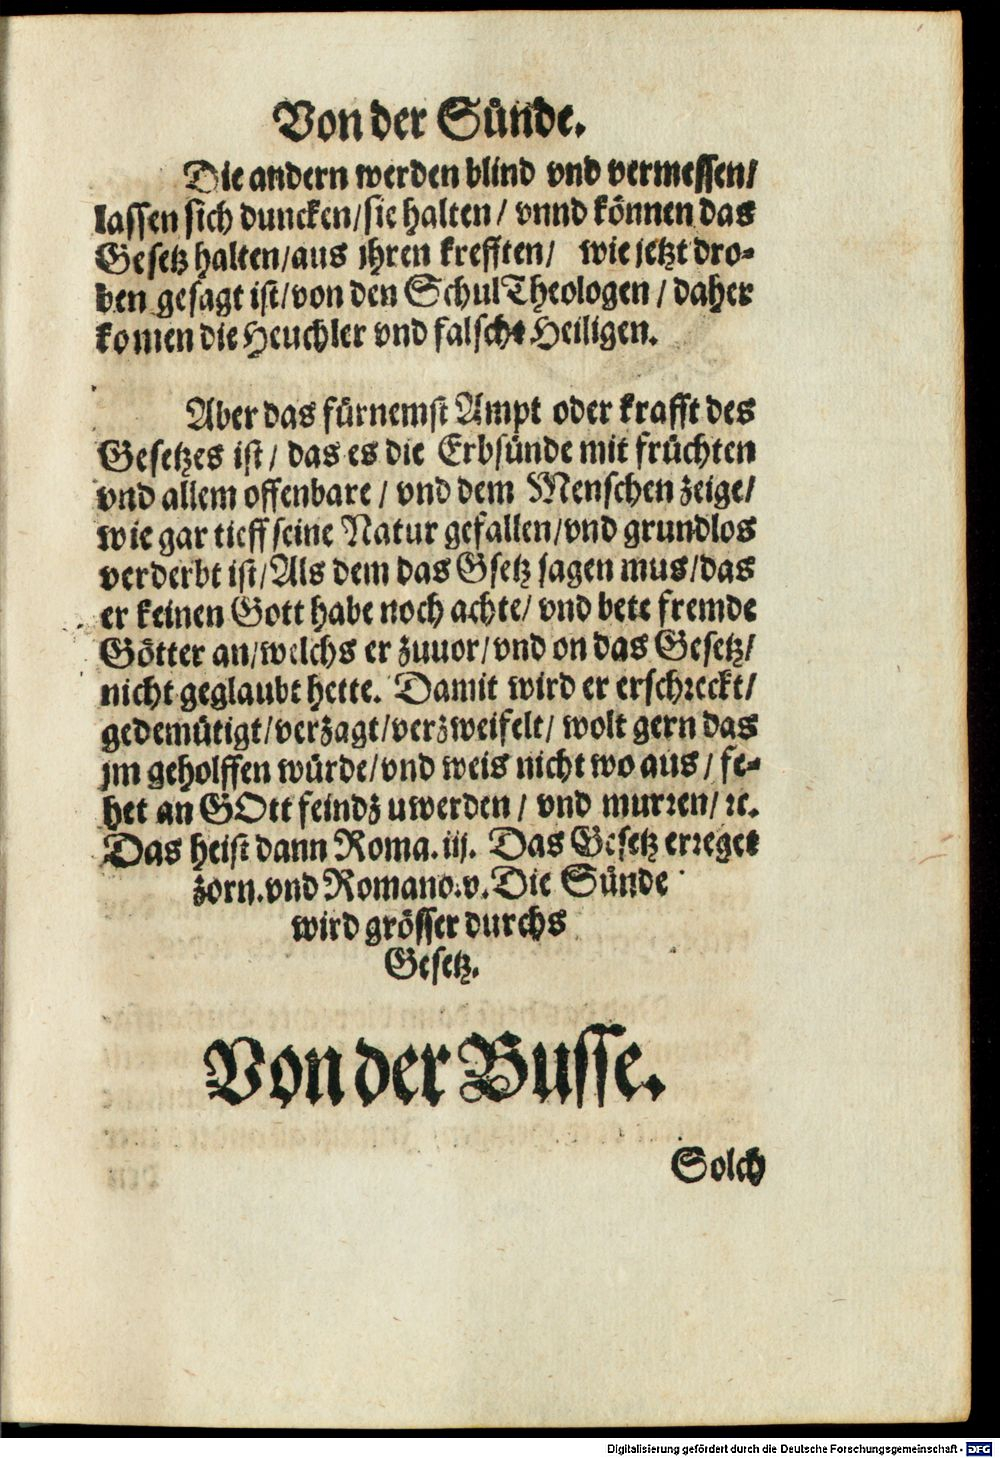 Von der Sünde.
Die andern werden blind vnd vermessen/
lassen sich duncken/sie halten/ vnnd können das
Gesetz halten/aus jhren krefften/ wie jetzt dro-
ben gesagt ist/von den SchulTheologen/ daher
komen die Heuchler vnd falsche Heiligen.
Aber das fürnemst Ampt oder krafft des
Gesetzes ist/ das es die Erbsünde mit früchten
vnd allem offenbare/ vnd dem Menschen zeige/
wie gar tieff seine Natur gefallen/vnd grundlos
verderbt ist/Als dem das Gsetz sagen mus/das
er keinen Gott habe noch achte/ vnd bete fremde
Götter an/welchs er zuuor/vnd on das Gesetz/
nicht geglaubt hette. Damit wird er erschreckt/
gedemütigt/verzagt/verzweifelt/ wolt gern das
jm geholffen würde/vnd weis nicht wo aus/ fe-
het an GOtt feindzuwerden/ vnd murren/ ꝛc.
Das heist dann Roma. iij. Das Gesetz erreget
zorn. vnd Romano. v. Die Sünde
wird grösser durchs
Gesetz.
Von der Busse.
Solch
Digitalisierung gefördert durch die Deutsche Forschungsgemeinschaft - DFG